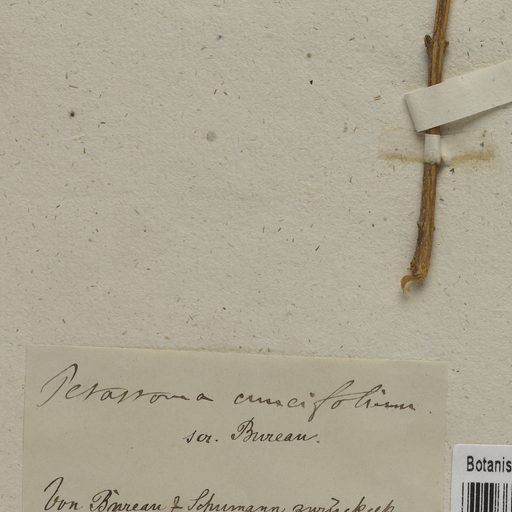 Petastoma cuneifolium.
scr. Bureau.
Von Bureau & Schumann
Botanis